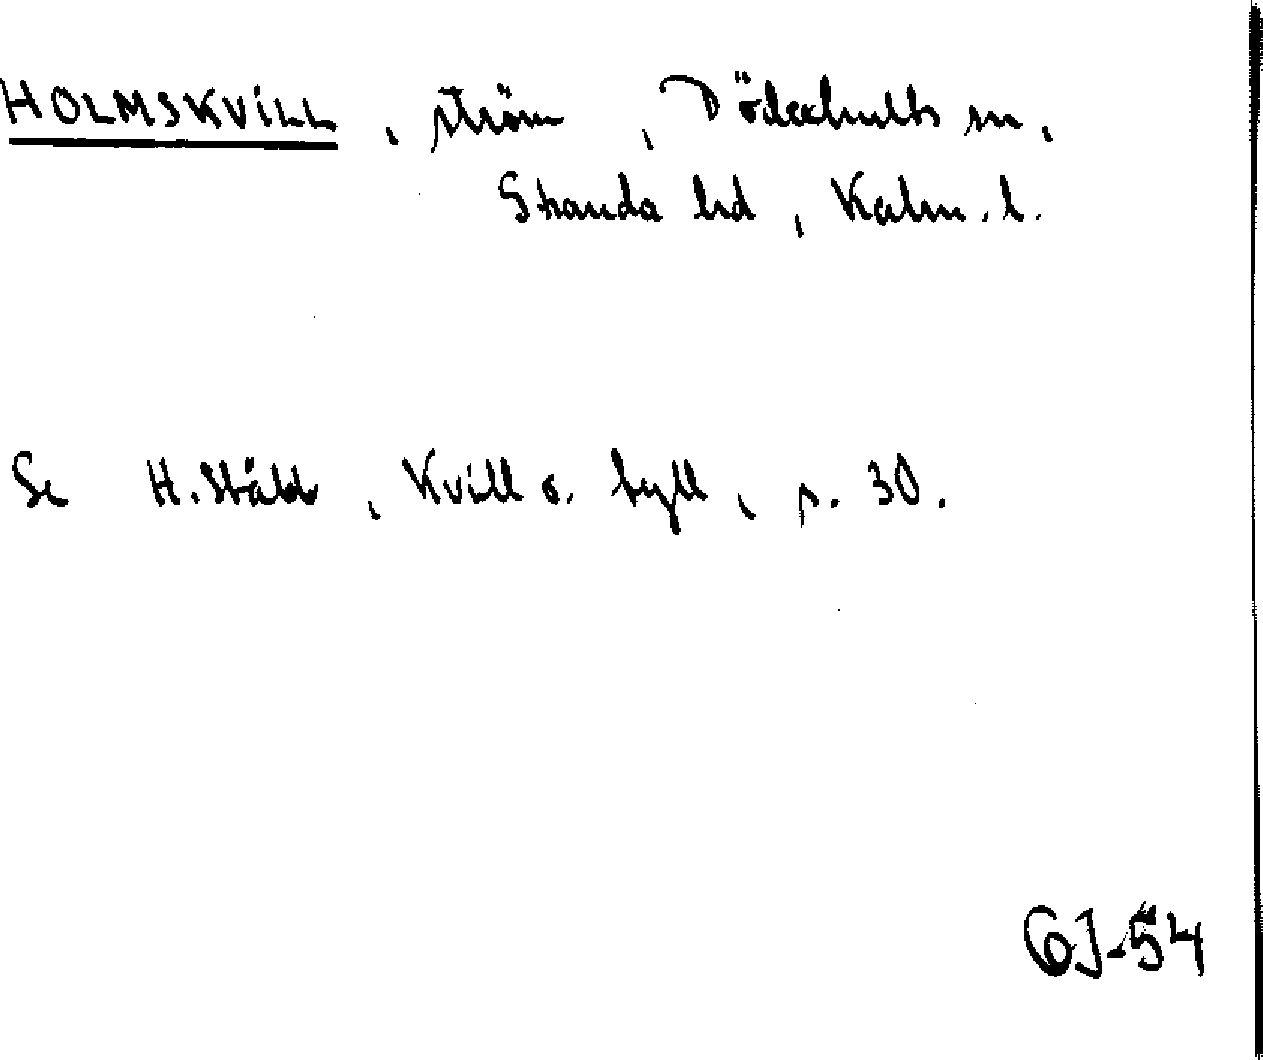 HOLMSKVILL, ström, Döderhults sn,
Stranda hd, Kalm. l.
Se H. Ståhl, Kvill o. tyll, s. 30.
6J-54